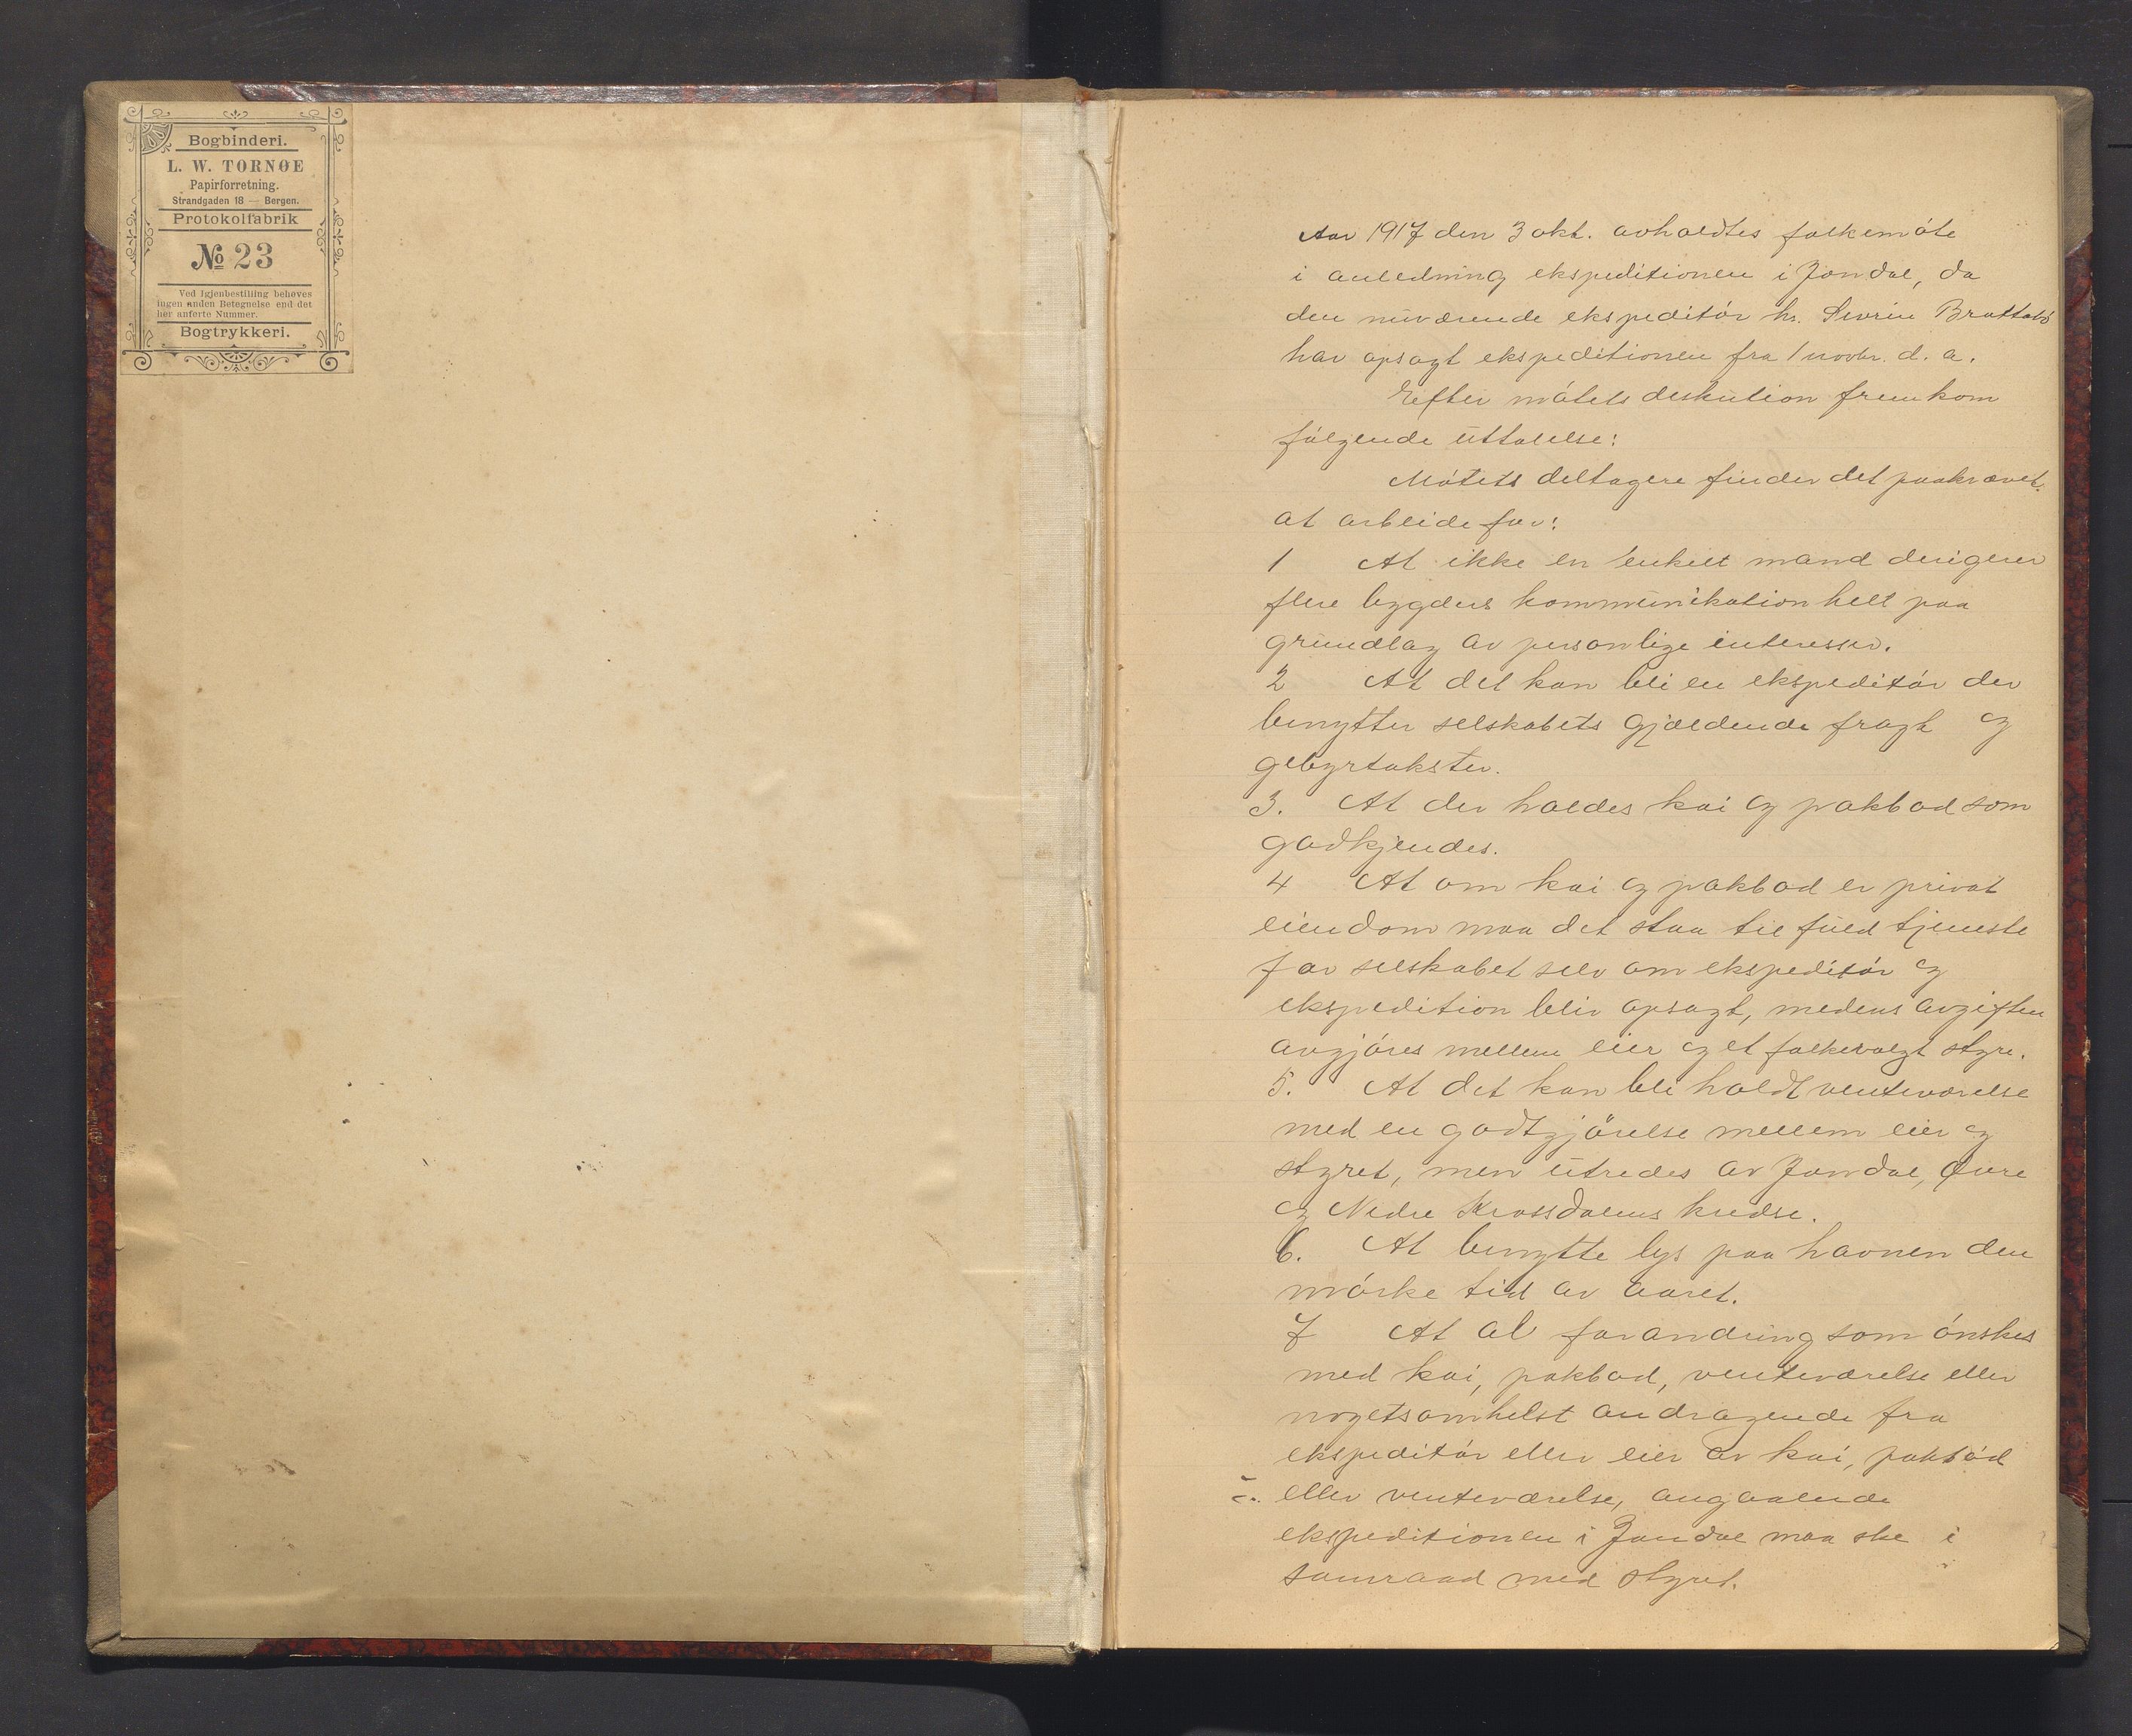 Bogbinderi.
L. W. TORNØE
Papirforretning.
Strandgaden 18 — Bergen.
Protokolfabrik
№ 23
Ved Igjenbestilling behøves
ingen anden Betegnelse end det
her anførte Nummer.
Bogtrykkeri.
Aar 1917 den 3 okt. avholdtes folkemöte
i anledning ekspeditionen i Jondal, da
den nuværende ekspeditör hr. Sevrin
har opsagt ekspeditionen fra 1 novbr. d. a.
Efter mötets deskution fremkom
fölgende uttalelse:
Mötets deltagere finder det paakrævet.
at arbeide for:
1 At ikke en enkelt mand derigerer
flere bygders kommunikation helt paa
grundlag av personlige interesser.
2 At det kan bli en ekspeditör der
benytter selskabets gjældende fragt og
gebyrtakster.
3. At der holdes kai og pakbod som
godkjendes.
4 At om kai og pakbod er privat
eiendom maa det staa til fuld tjeneste
for selskabet selv om ekspeditör og
ekspedition blir opsagt, medens avgiften
avgjöres mellem eier og et folkevalgt styre.
5. At det kan bli holdt venteværelse
med en godtgjörelse mellem eier og
styret, men utredes av Jondal, Øvre
og Nedre Krossdalens kredse.
6. At benytte lys paa havnen den
mörke tid av aaret.
7 At al forandring som önskes
med kai, pakbod, venteværelse eller
nogetsomhelst andragende fra
ekspeditör eller eier av kai, pakbod
eller venteværelse, angaaende
ekspeditionen i Jondal maa ske i
samraad med styret.